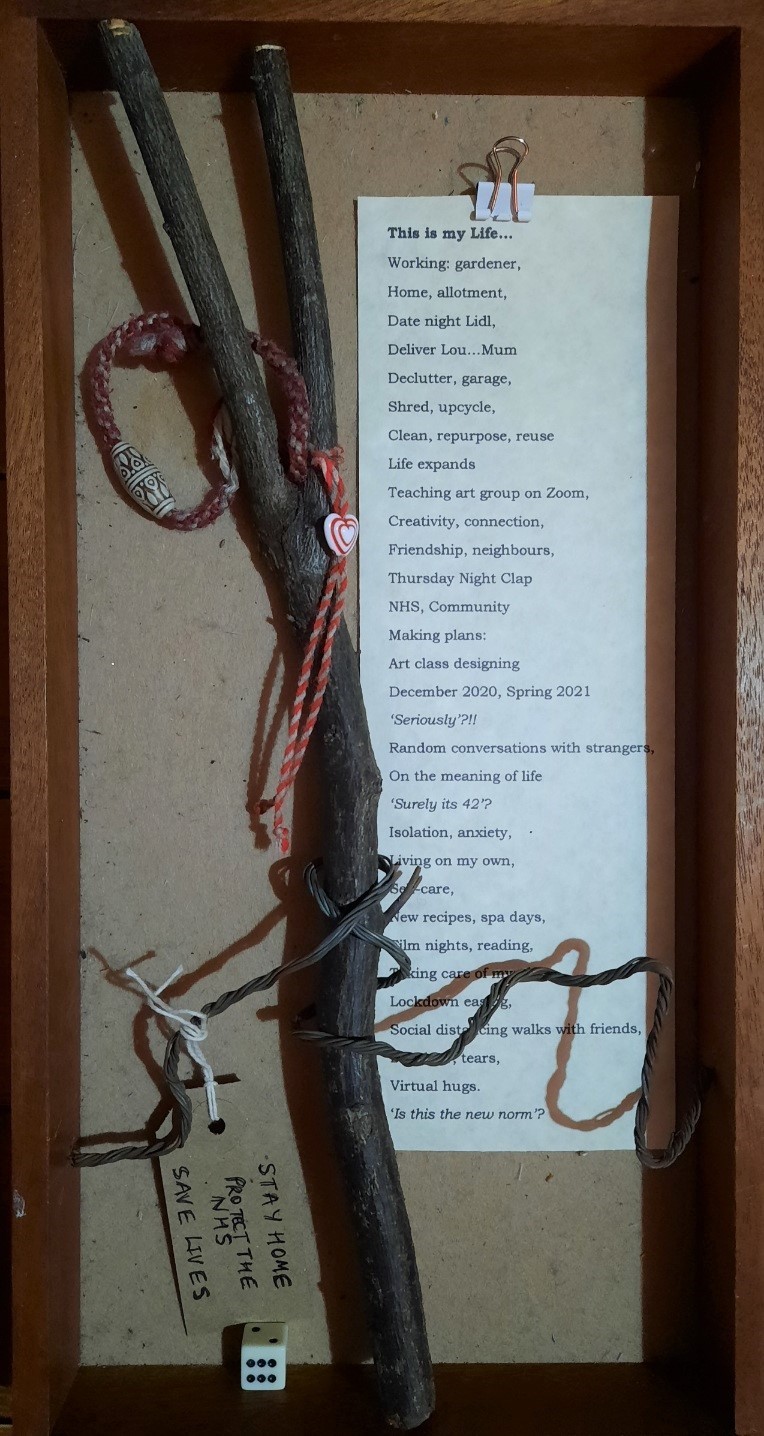 This is my Life...
Working: gardener,
Home, allotment,
Date night Lidl,
Deliver Lou...Mum
Declutter, garage,
Shred, upcycle,
Clean, repurpose, reuse
Life expands
Teaching art group on Zoom,
Creativity, connection,
Friendship, neighbours,
Thursday Night Clap
NHS, Community
Making plans:
Art class designing
December 2020, Spring 2021
‘Seriously’?!!
Random conversations with strangers,
On the meaning of life
‘Surely its 42’?
Isolation, anxiety,
Living on my own,
Self-care,
New recipes, spa days,
Film nights, reading,
Taking care of my
Lockdown easing,
Social distancing walks with friends,
, tears,
Virtual hugs.
‘Is this the new norm’?
STAY HOME
PROTECT THE
NHS
SAVE LIVES